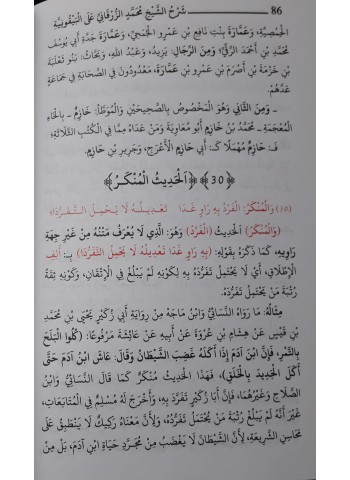 86 شَرْحُ الشَّيْخِ مُحَمَّدٍ الزُّرْقَانِيِّ عَلَى الْبَيْقُونِيَّةِ
الْحِمْصِيَّةِ، وَعَمَّارَةَ بِنْتِ نَافِعِ بْنِ عَمْرٍو الْجُمَحِيِّ، وَعَمَّارَةَ جَدَّةِ أَبِي يُوسُفَ
مُحَمَّدِ بْنِ أَحْمَدَ الرَّقِّيِّ؛ وَمِنَ الرِّجَالِ: يَزِيدُ، وَعَبْدُ اللهِ، وَبَحَّاثُ: بَنُو ثَعْلَبَةَ
بْنِ خَزْمَةَ بْنِ أَصْرَمَ بْنِ عَمْرِو بْنِ عَمَّارَةَ، مَعْدُودُونَ فِي الصَّحَابَةِ فِي جَمَاعَةٍ
عَدَّهُمْ.
ـ وَمِنَ الثَّانِي وَهُوَ الْمَخْصُوصُ بِالصَّحِيحَيْنِ وَالْمُوَطَّأِ: خَازِمٌ ـ بِالْخَاءِ
الْمُعْجَمَةِ ـ مُحَمَّدُ بْنُ خَازِمٍ أَبُو مُعَاوِيَةَ وَمَنْ عَدَاهُ مِمَّا فِي الْكُتُبِ الثَّلَاثَةِ،
فَـ: حَازِمٌ مُهْمَلًا كَـ: أَبِي حَازِمٍ الْأَعْرَجِ، وَجَرِيرِ بْنِ حَازِمٍ.
﴿30﴾ ﴿اَلْحَدِيثُ الْمُنْكَرُ﴾
وَالْمُنْكَرُ: الْفَرْدُ بِهِ رَاوٍ غَدَا تَعْدِيلُهُ لَا يَحْمِلُ التَّفَرُّدَا
(وَالْمُنْكَرُ) الْحَدِيثُ (الْفَرْدُ) وَهُوَ: الَّذِي لَا يُعْرَفُ مَتْنُهُ مِنْ غَيْرِ جِهَةِ
رَاوِيهِ، كَمَا ذَكَرَهُ بِقَوْلِهِ: (بِهِ رَاوٍ غَدَا تَعْدِيلُهُ لَا يَحْمِلُ التَّفَرُّدَا) بِـ: أَلِفِ
الْإِطْلَاقِ، أَيْ لَا يَحْتَمِلُ تَفَرُّدَهُ بِهِ لِكَوْنِهِ لَمْ يَبْلُغْ فِي الْإِتْقَانِ، وَكَوْنِهِ ثِقَةً
رُتْبَةَ مَنْ يَحْتَمِلُ تَفَرُّدَهُ.
مِثَالُهُ: مَا رَوَاهُ النَّسَائِيُّ وَابْنُ مَاجَهْ مِنْ رِوَايَةِ أَبِي زُكَيْرٍ يَحْيَى بْنِ مُحَمَّدِ
بْنِ قَيْسٍ عَنْ هِشَامِ بْنِ عُرْوَةَ عَنْ أَبِيهِ عَنْ عَائِشَةَ مَرْفُوعًا: (كُلُوا الْبَلَحَ
بِالتَّمْرِ، فَإِنَّ ابْنَ آدَمَ إِذَا أَكَلَهُ غَضِبَ الشَّيْطَانُ وَقَالَ: عَاشَ ابْنُ آدَمَ حَتَّى
أَكَلَ الْجَدِيدَ بِالْخَلَقِ)، فَهَذَا الْحَدِيثُ مُنْكَرٌ كَمَا قَالَ النَّسَائِيُّ وَابْنُ
الصَّلَاحِ وَغَيْرُهُمَا، فَإِنَّ أَبَا زُكَيْرٍ تَفَرَّدَ بِهِ، وَأَخْرَجَ لَهُ مُسْلِمٌ فِي الْمُتَابَعَاتِ،
غَيْرَ أَنَّهُ لَمْ يَبْلُغْ رُتْبَةَ مَنْ يُحْتَمَلُ تَفَرُّدُهُ، وَلِأَنَّ مَعْنَاهُ رَكِيكٌ لَا يَنْطَبِقُ عَلَى
مَحَاسِنِ الشَّرِيعَةِ، لِأَنَّ الشَّيْطَانَ لَا يَغْضَبُ مِنْ مُجَرَّدِ حَيَاةِ ابْنِ آدَمَ، بَلْ مِنْ